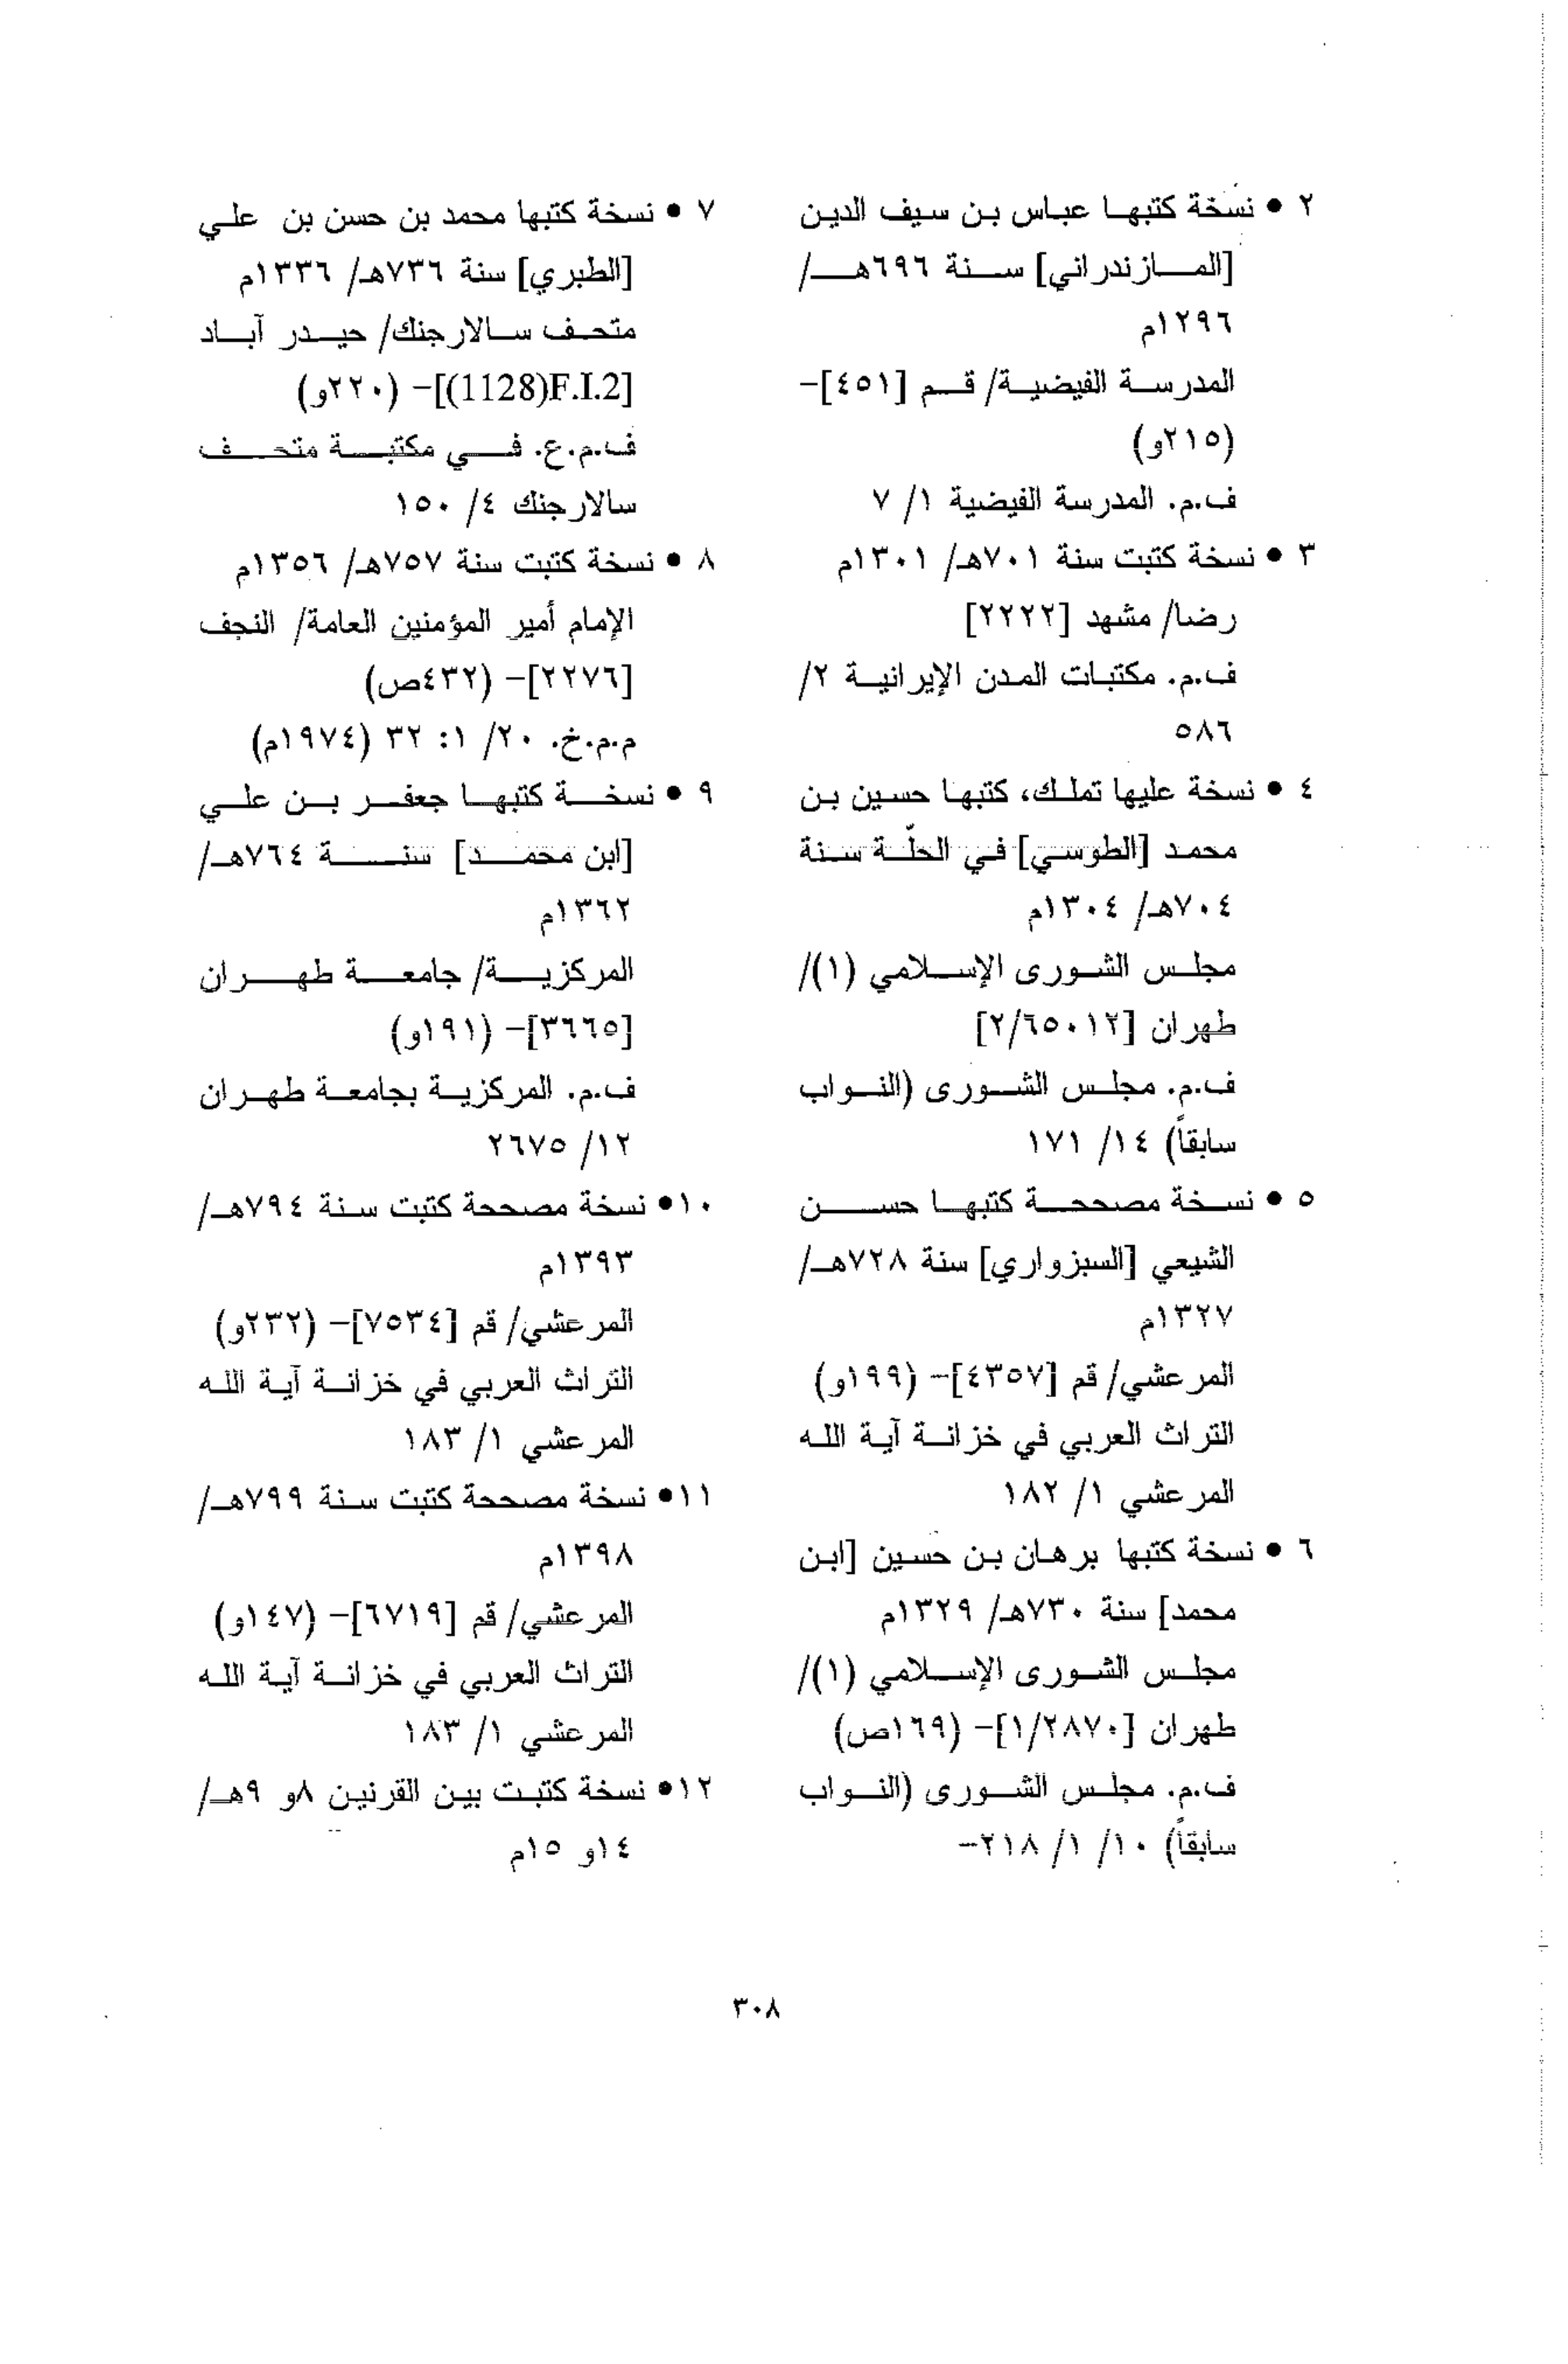 ٢ • نسخة كتبها عباس بن سيف الدين
[المازندراني] سنة ٦٩٦هـ/
١٢٩٦م
المدرسة الفيضية/ قم [٤٥١]-
(٢١٥و)
ف.م. المدرسة الفيضية ١/ ٧
٣ • نسخة كتبت سنة ٧٠١هـ/ ١٣٠١م
رضا/ مشهد [٢٢٢٢]
ف.م. مكتبات المدن الإيرانية ٢/
٥٨٦
٤ • نسخة عليها تملك، كتبها حسين بن
محمد [الطوسي] في الحلّة سنة
٧٠٤هـ/ ١٣٠٤م
مجلس الشورى الإسلامي (١)/
طهران [٢/٦٥٠١٢]
ف.م. مجلس الشورى (النواب
سابقاً) ١٤/ ١٧١
٥ • نسخة مصححة كتبها حسن
الشيعي [السبزواري] سنة ٧٢٨هـ/
١٣٢٧م
المرعشي/ قم [٤٣٥٧]- (١٩٩و)
التراث العربي في خزانة آية الله
المرعشي ١/ ١٨٢
٦ • نسخة كتبها برهان بن حسين [ابن
محمد] سنة ٧٣٠هـ/ ١٣٢٩م
مجلس الشورى الإسلامي (١)/
طهران [١/٢٨٧٠]- (١٦٩ص)
ف.م. مجلس الشورى (النواب
سابقاً) ١٠/ ١/ ٢١٨-
٧ • نسخة كتبها محمد بن حسن بن علي
[الطبري] سنة ٧٣٦هـ/ ١٣٣٦م
متحف سالارجنك/ حيدر آباد
[1128)F.I.2)]- (٢٢٠و)
ف.م.ع. في مكتبة متحف
سالارجنك ٤/ ١٥٠
٨ • نسخة كتبت سنة ٧٥٧هـ/ ١٣٥٦م
الإمام أمير المؤمنين العامة/ النجف
[٢٢٧٦]- (٤٣٢ص)
م.م.خ. ٢٠/ ١: ٣٢ (١٩٧٤م)
٩ • نسخة كتبها جعفر بن علي
[ابن محمد] سنة ٧٦٤هـ/
١٣٦٢م
المركزية/ جامعة طهران
[٣٦٦٥]- (١٩١و)
ف.م. المركزية بجامعة طهران
١٢/ ٢٦٧٥
١٠• نسخة مصححة كتبت سنة ٧٩٤هـ/
١٣٩٣م
المرعشي/ قم [٧٥٣٤]- (٢٣٢و)
التراث العربي في خزانة آية الله
المرعشي ١/ ١٨٣
١١• نسخة مصححة كتبت سنة ٧٩٩هـ/
١٣٩٨م
المرعشي/ قم [٦٧١٩]- (١٤٧و)
التراث العربي في خزانة آية الله
المرعشي ١/ ١٨٣
١٢• نسخة كتبت بين القرنين ٨و ٩هـ/
١٤و ١٥م
٣٠٨